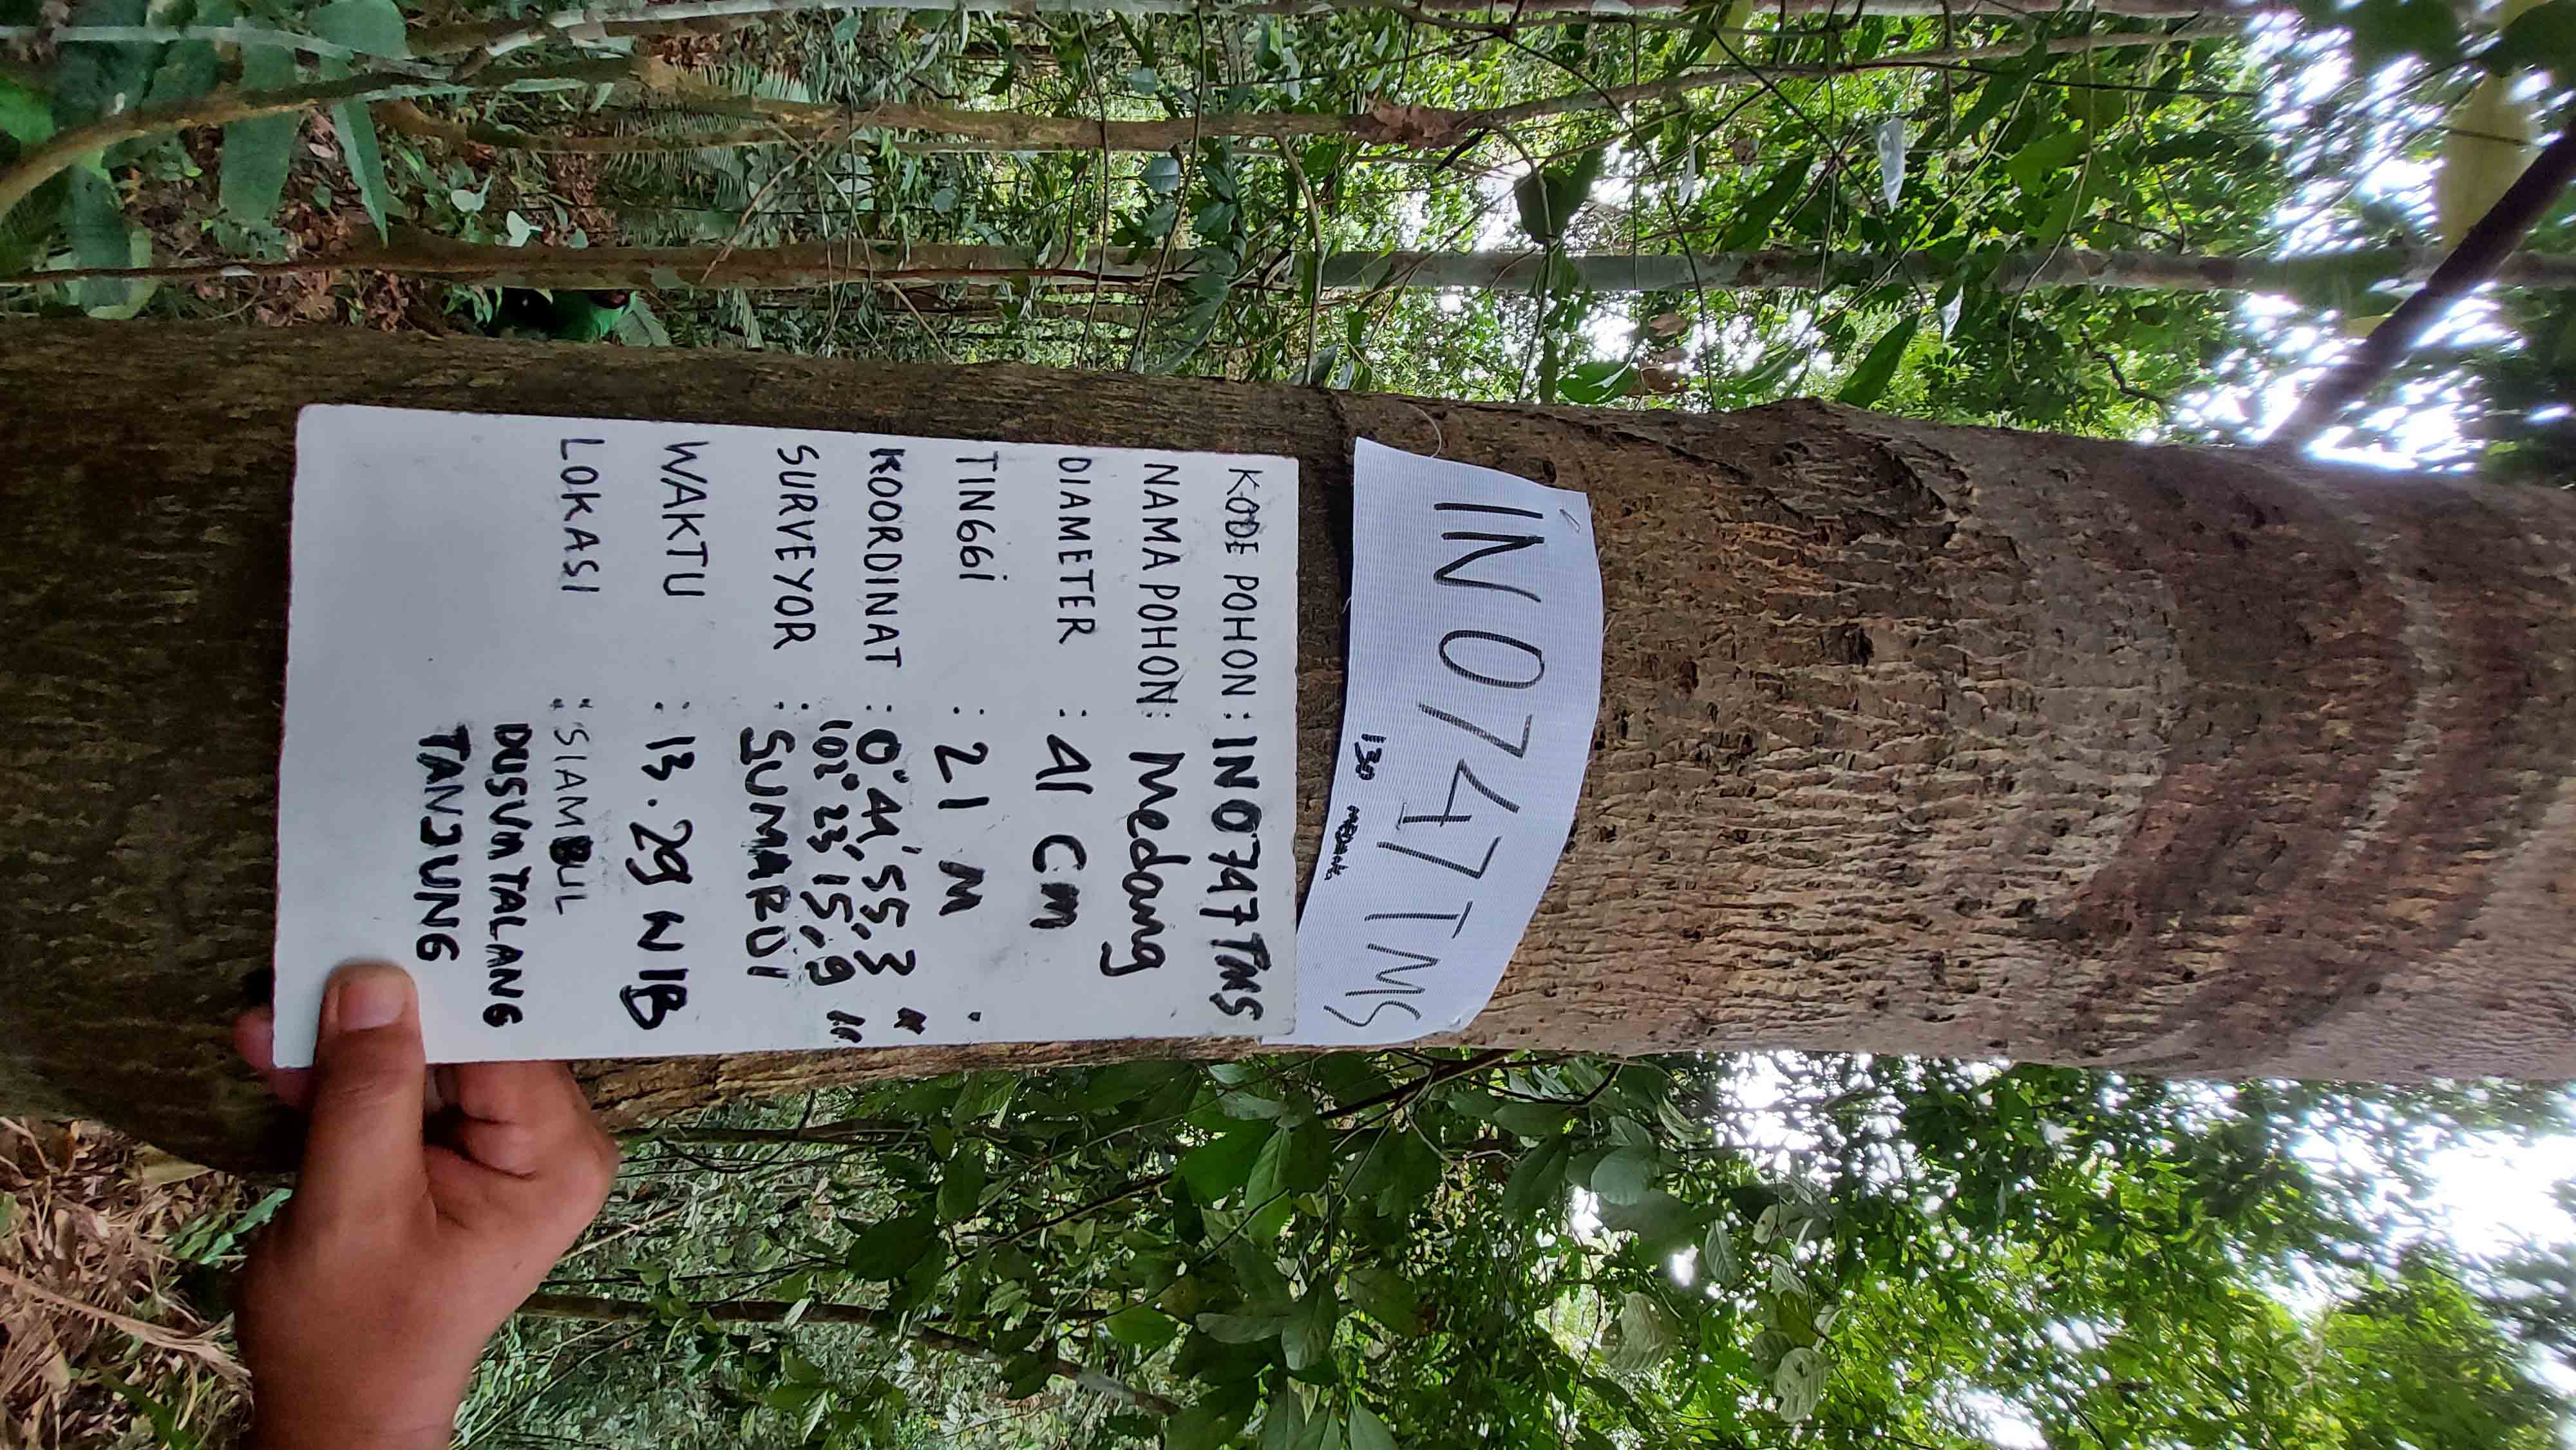 IN0747TMS
130 MEDANG
KODE POHON : IN0747TMS
NAMA POHON : Medang
DIAMETER : 41 Cm
TINGGI : 21 M
KOORDINAT : 0° 44' 55.3"
102° 23' 15.9"
SURVEYOR : SUMARDI
WAKTU : 13.29 WIB
LOKASI : SIAMBUL
DUSUN TALANG
TANJUNG